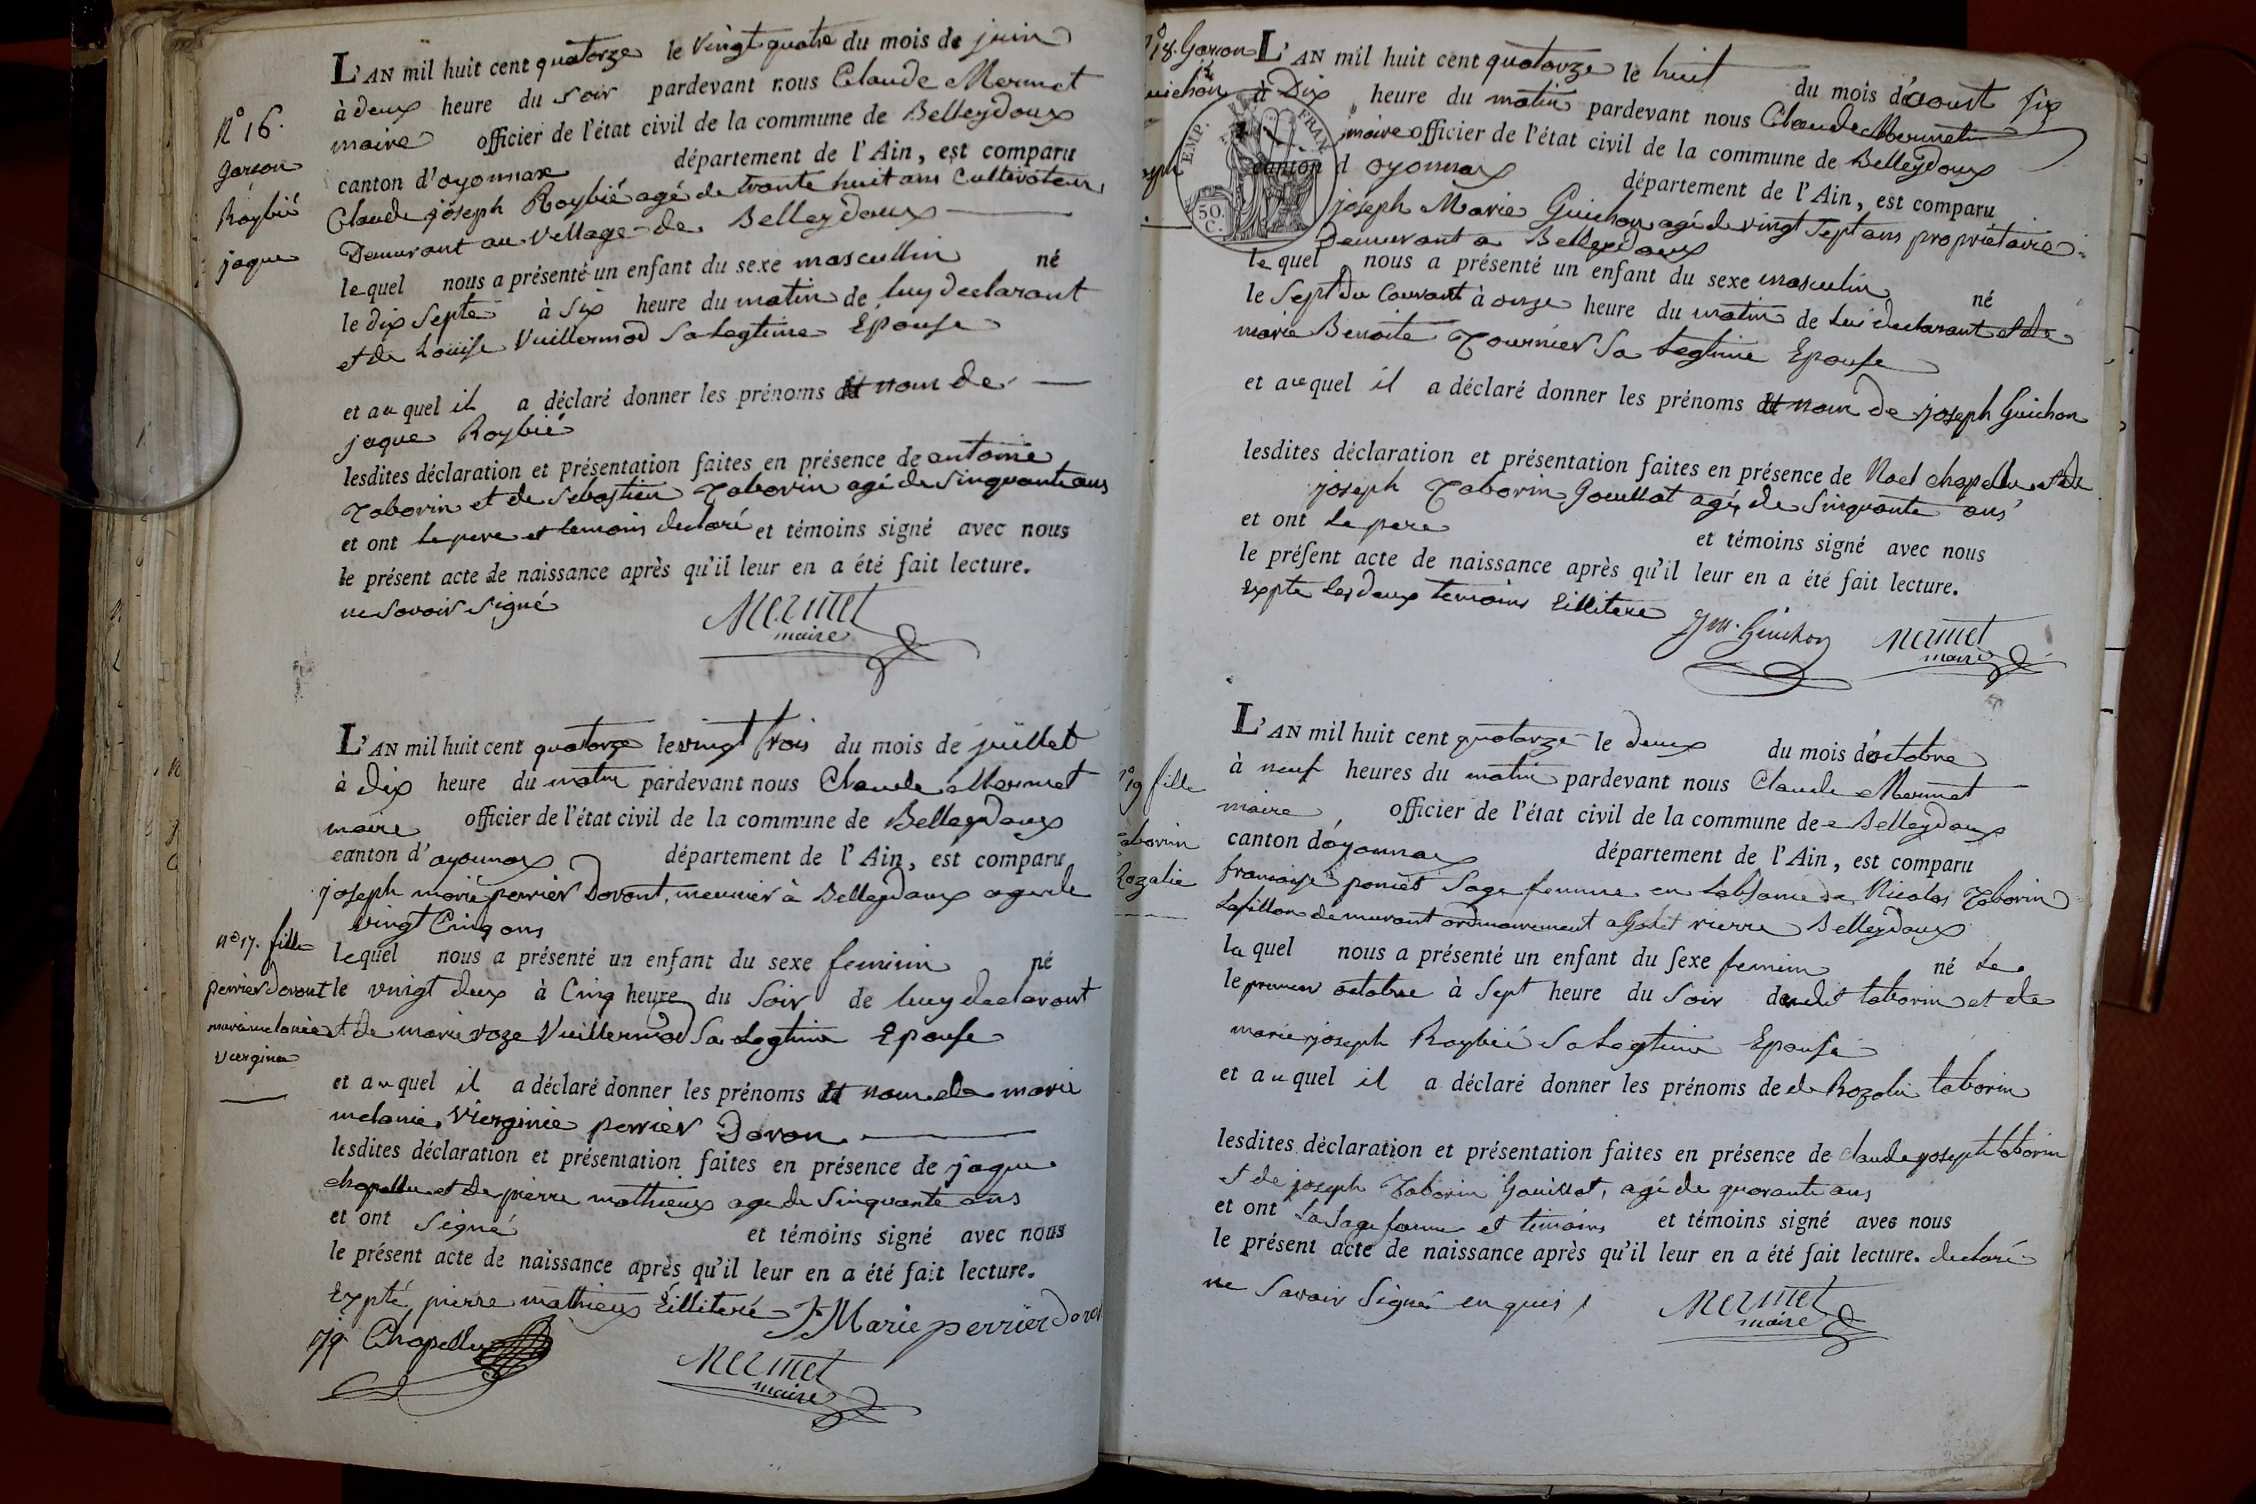 N° 16.
garson
Roybié
jaque
L'AN mil huit cent quatorze le vingt quatre du mois de juin
à deux heure du soir pardevant nous Claude Mermet
maire officier de l'état civil de la commune de Belleydoux
canton d'oyonnax département de l'Ain, est comparu
Claude joseph Roybié agé de trante huit ans Cultivateur
Demurant au Vellage de Belleydoux
lequel nous a présenté un enfant du sexe mascullin né
le dix septe à six heure du matin de luy declarant
et de Louise Vuillermod Sa Legtime Epouse
et au quel il a déclaré donner les prénoms et nom de
jaque Roybié
lesdites déclaration et présentation faites en présence de antoine
Taborin et de Sebastien Taborin agé de Sinquante ans
et ont le pere et temoins declaré et témoins signé avec nous
le présent acte de naissance après qu'il leur en a été fait lecture.
ne Savoir Signé
Mermet
maire
L'AN mil huit cent quatorze le vingt trois du mois de juillet
à dix heure du matin pardevant nous Claude Mermet
maire officier de l'état civil de la commune de Belleydoux
canton d'oyonnax département de l'Ain, est comparu
joseph marie perrier Dovont, meunier à Belleydoux age de
vingt Cinq ans
n° 17. fille
perrier dovont
marie melanie
Viergine
lequel nous a présenté un enfant du sexe feminin né
le vingt deux à Cinq heure du Soir de luy declarant
et de marie roze Vuillermod Sa Legtime Epouse
et au quel il a déclaré donner les prénoms et nom de marie
melanie Vierginie perrier Dovon
lesdites déclaration et présentation faites en présence de jaque
chapellu et de pierre mathieux age de Sinquante ans
et ont Signé et témoins signé avec nous
le présent acte de naissance après qu'il leur en a été fait lecture.
Expté pierre mathieux Eilliteré J Marie perrier Dovon
Chapellu
Mermet
maire
N° 18. Garson
Guichon
L'AN mil huit cent quatorze le huit du mois d'aoust
à Dix heure du matin pardevant nous Claude Mermet
maire officier de l'état civil de la commune de Belleydoux
canton d oyonnax département de l'Ain, est comparu
EMP. FRAN.
50. C.
joseph Marie Guichon agé de vingt Sept ans propriétaire
Demurant a Belleydoux
le quel nous a présenté un enfant du sexe masculin né
le Sept du Courant à onze heure du matin de Lui declarant et de
marie Benoite Tournier Sa Legtime Epouse
et au quel il a déclaré donner les prénoms et nom de joseph Guichon
lesdites déclaration et présentation faites en présence de Noel chapellu et de
joseph Taborin Gouillat agé de Sinquante ans
et ont Le pere et témoins signé avec nous
le présent acte de naissance après qu'il leur en a été fait lecture.
Expte Les deux temoins Eillitere
Guichon
Mermet
maire
L'AN mil huit cent quatorze le deux du mois d'octobre
à neuf heures du matin pardevant nous Claude Mermet
n° 19 fille
Taborin
Rozalie
maire officier de l'état civil de la commune de Belleydoux
canton d'oyonnax département de l'Ain, est comparu
francoise poncet Sage femme en Labsance de Nicolas Taborin
Lapillon demurant ordinairement Belleydoux
la quel nous a présenté un enfant du sexe feminin né Le
le premier octobre à Sept heure du Soir dudit taborin et de
marie joseph Roybié Sa Legtime Epouse
et au quel il a déclaré donner les prénoms de de Rozalie taborin
lesdites déclaration et présentation faites en présence de claude joseph taborin
et de joseph Taborin Gouillat, agé de quarante ans
et ont La Sage famme et temoins et témoins signé avec nous
le présent acte de naissance après qu'il leur en a été fait lecture. declaré
ne Savoir Signé enquis
Mermet
maire